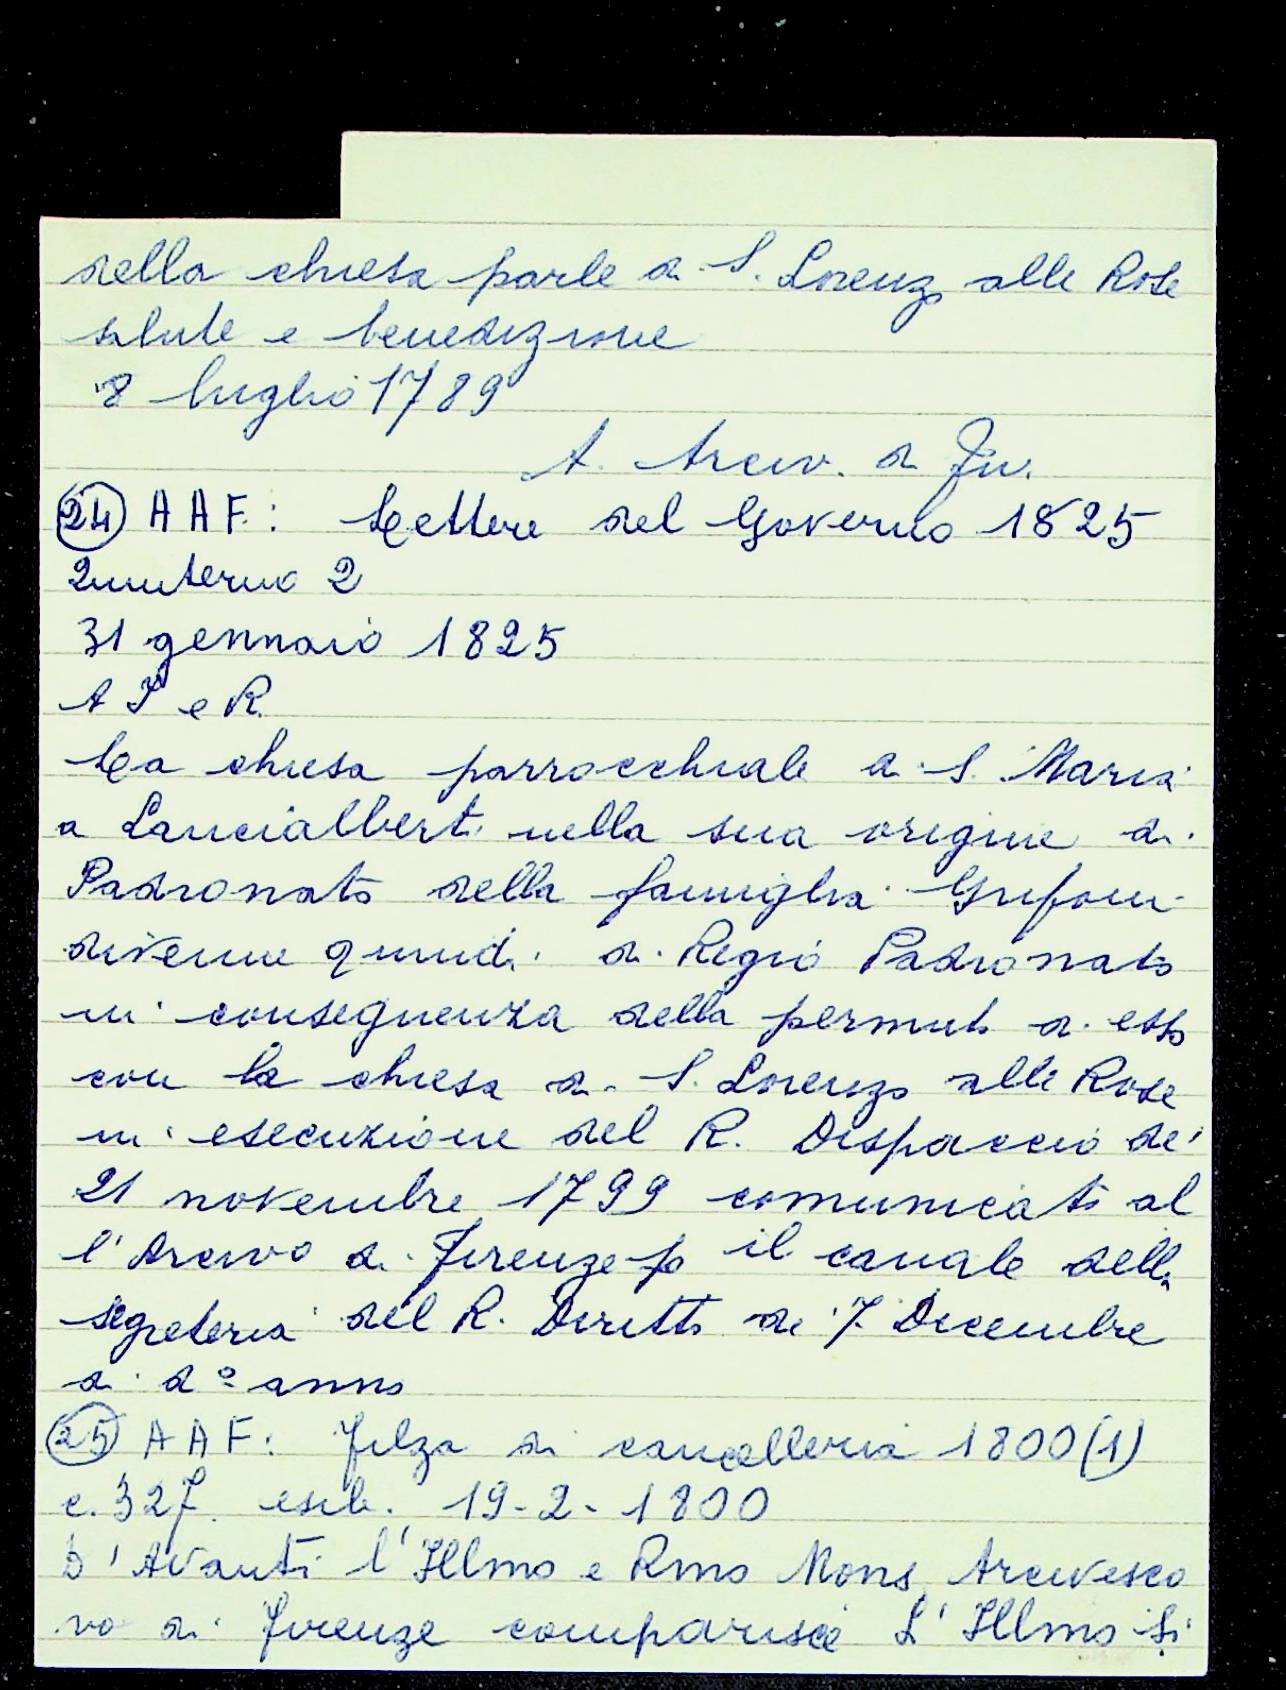 della chiesa parle di S. Lorenzo alle Rose
salute e benedizione
8 luglio 1789
A. Arciv. di Fir.
24 AAF: Lettere del Governo 1825
Quinterno 2
31 gennaio 1825
A I e R.
La chiesa parrocchiale di S. Maria
a Lancialberti nella sua origine di
Padronato della famiglia Grifoni
divenne quindi di Regio Padronato
in conseguenza della permuta di esso
con la chiesa di S. Lorenzo alle Rose
in esecuzione del R. Dispaccio de'
21 novembre 1799 comunicato al
l'Arcivo di Firenze p il canale della
segreteria del R. Diritto de' 7 Dicembre
di dº anno
25 AAF: Filza di cancelleria 1800(1)
c. 327 esib. 19-2-1800
D'Avanti l'Illmo e Rmo Mons. Arcivesco
vo di Firenze comparisce L'Illmo Si